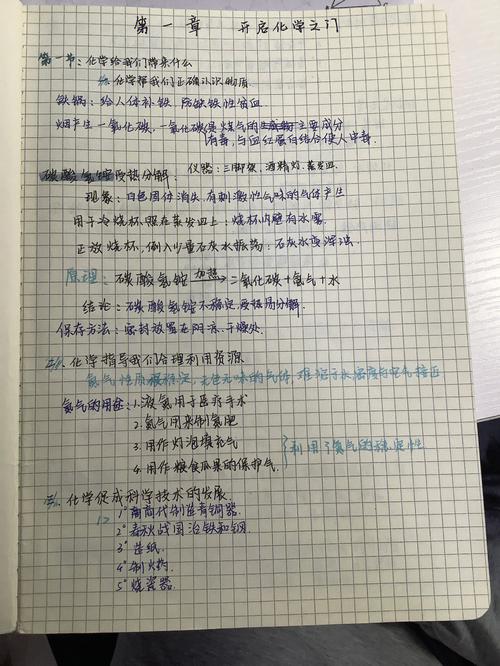 第一章 开启化学之门
第一节：化学给我们带来什么
一. 化学帮我们正确认识物质.
铁锅：给人体补铁 防缺铁性贫血
烟产生一氧化碳，一氧化碳是煤气的主要成分
有毒，与血红蛋白结合使人中毒.
碳酸氢铵受热分解： 仪器：三脚架，酒精灯.蒸发皿.
现象：白色固体消失.有刺激性气味的气体产生
用干冷烧杯.照在蒸发皿上：烧杯内壁有水雾.
正放烧杯，倒入少量石灰水振荡：石灰水变浑浊.
原理：碳酸氢铵 加热→ 二氧化碳+氨气+水
结论：碳酸氢铵不稳定,受热易分解.
保存方法：密封放置在阴凉、干燥处.
二. 化学指导我们合理利用资源
氮气性质很稳定，无色无味的气体，难溶于水密度与空气接近
氮气的用途：1.液氮用于医疗手术
2.氮气用来制氮肥
3.用作灯泡填充气
4.用作粮食瓜果的保护气.
利用了氮气的稳定性
三. 化学促成科学技术的发展.
1°商代制造青铜器.
2°春秋战国冶铁和钢.
3°造纸.
4°制火药.
5°烧瓷器.